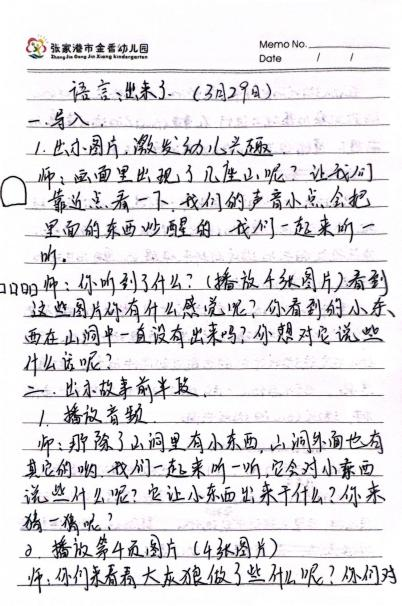 张家港市金香幼儿园
Zhang Jia Gang Jin Xiang kindergarten
Memo No.
Date / /
语言:出来了 (3月29日)
一.导入.
1.出示图片,激发幼儿兴趣
师:画面里出现了几座山呢?让我们
靠近点看一下,我们的声音小点,会把
里面的东西吵醒的,我们一起来听一
听。
师:你听到了什么?(播放4张图片)看到
这些图片你有什么感觉呢?你看到的小东
西在山洞中一直没有出来吗?你想对它说些
什么话呢?
二.出示故事前半段.
1.播放音频.
师:那除了山洞里有小东西,山洞外面也有
其它的哟,我们一起来听一听,它会对小东西
说些什么呢?它让小东西出来干什么?你来
猜一猜呢?
2.播放第4页图片(4张图片)
师:你们来看看大灰狼做了些什么呢?你们对